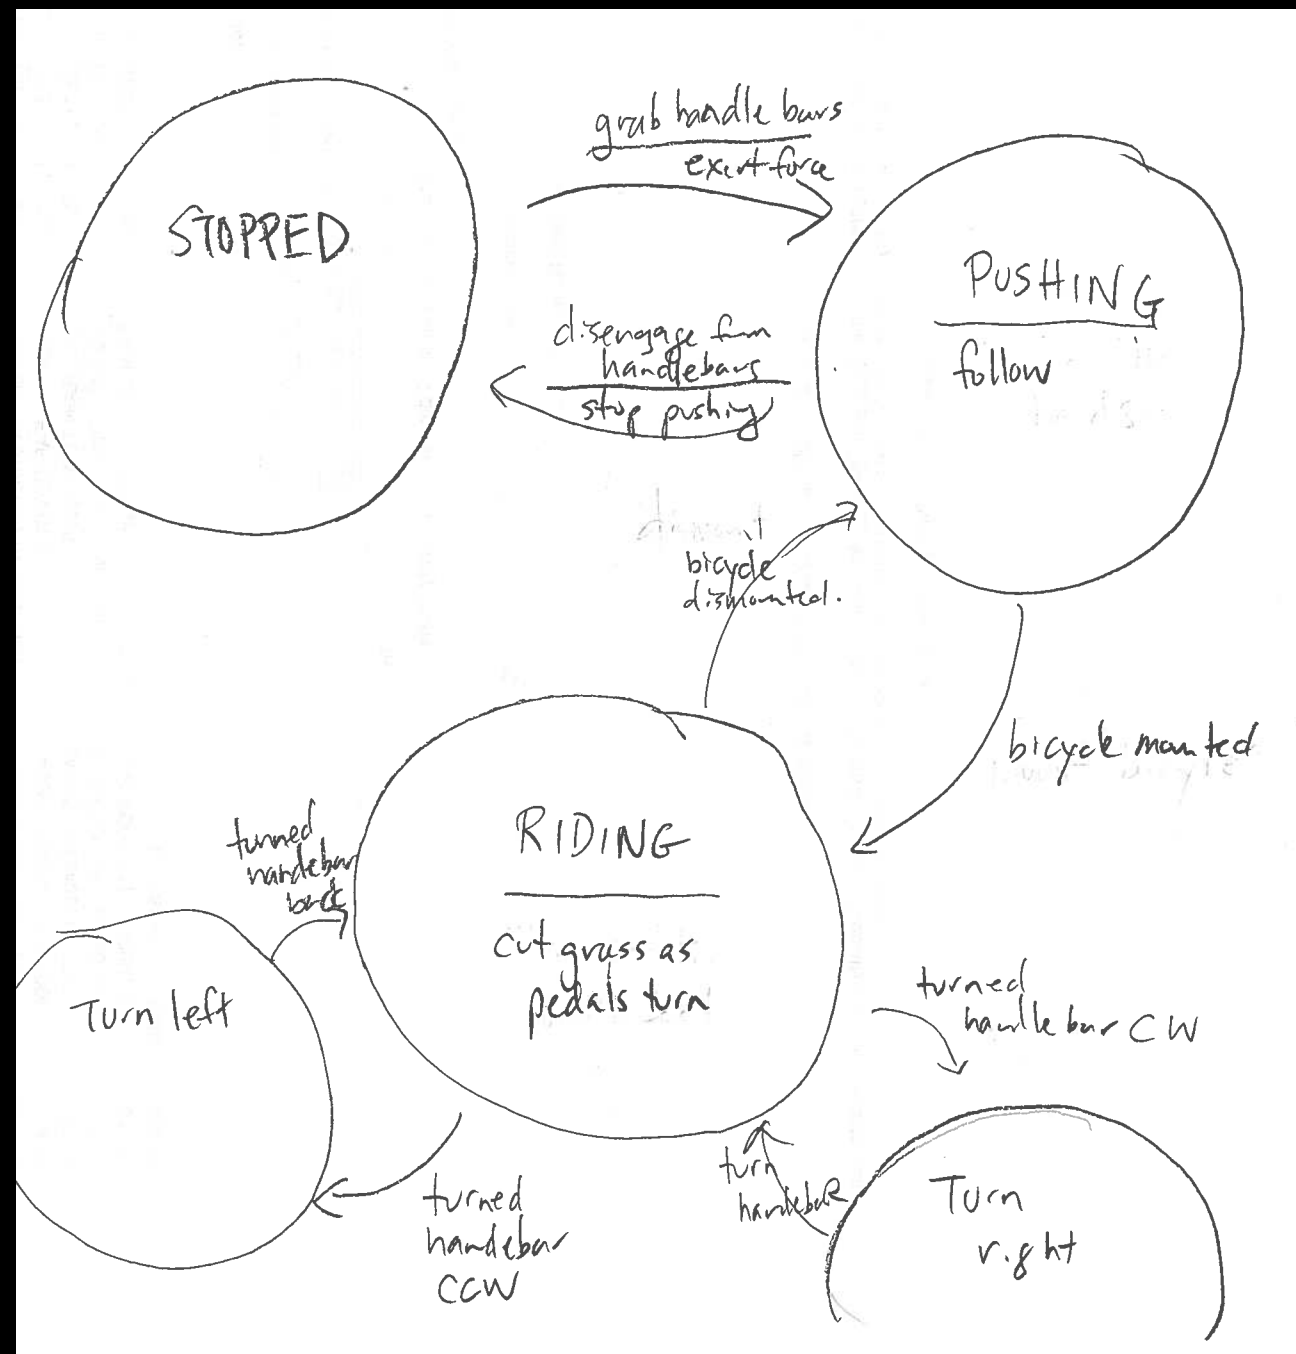 grab handle bars
exert force
STOPPED
PUSHING
follow
disengage from
handlebars
stop pushing
bicycle
dismounted.
bicycle mounted
RIDING
cut grass as
pedals turn
turned
handebar
back
Turn left
turned
handle bar CW
turned
handebar
CCW
turn
handebar
Turn
right